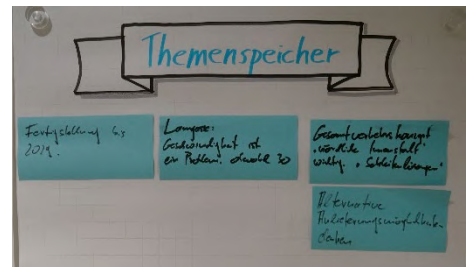 Themenspeicher
Fertigstellung bis
2029.
Geschwindigkeit ist
ein Problem, obwohl 30
Gesamtverkehrskonzept
"nördliche Innenstadt"
wichtig
Alternative
Anlieferungsmöglichkeiten